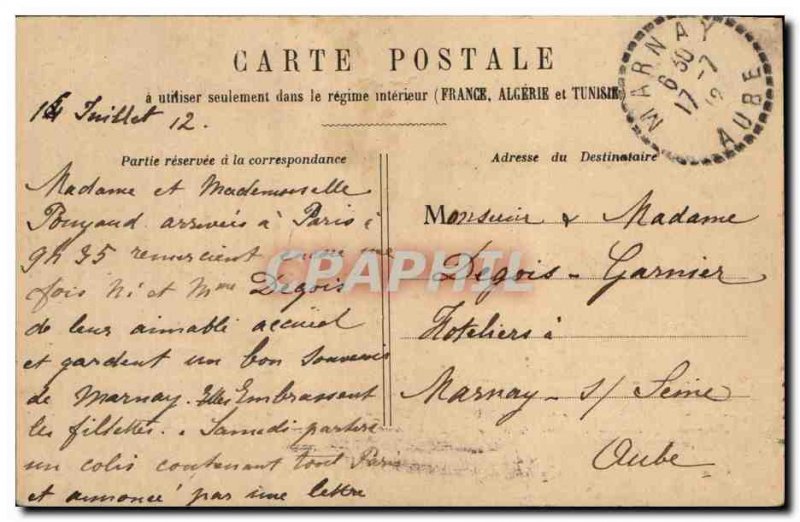 CARTE POSTALE
à utiliser seulement dans le régime intérieur (FRANCE, ALGÉRIE et TUNISIE
Juillet 12.
MARNAY
AUBE
6 30
17 -7
12
Partie réservée à la correspondance
Madame et Mademoiselle
arrivées à Paris à
9h 35 remercient encore une
fois Mr et Mme Degois
de leur aimable accueil
et gardent un bon Souvenir
de Marnay. Elles Embrassent
les fillettes. Samedi partira
un colis contenant tout Paris
et annoncé par une lettre
Adresse du Destinataire
Monsieur & Madame
Degois - Garnier
Hoteliers à
Marnay - s/ Seine
Aube
CPARPHIL